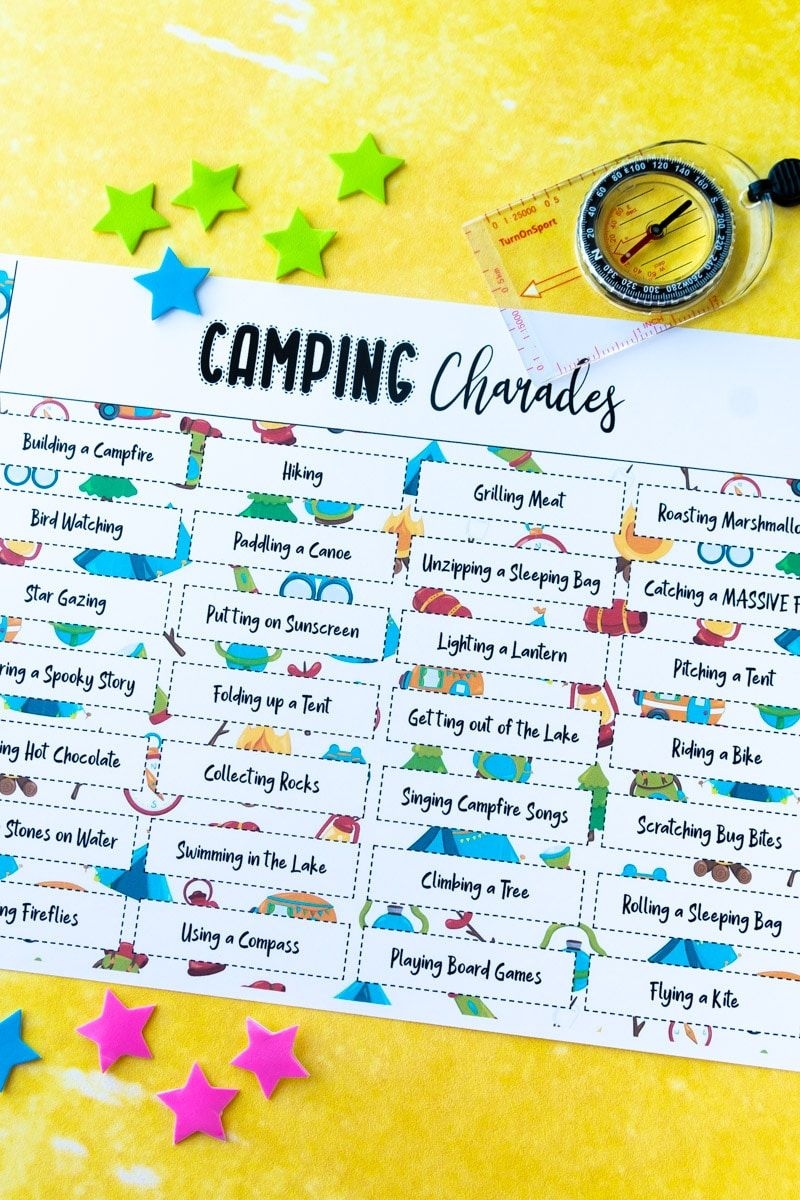 TurnOnSport
CAMPING Charades
Building a Campfire
Hiking
Grilling Meat
Roasting
Bird Watching
Paddling a Canoe
Unzipping a Sleeping Bag
Catching a MASSIVE
Star Gazing
Putting on Sunscreen
Lighting a Lantern
Pitching a Tent
a Spooky Story
Folding up a Tent
Getting out of the Lake
Riding a Bike
Hot Chocolate
Collecting Rocks
Singing Campfire Songs
Scratching Bug Bites
Stones on Water
Swimming in the Lake
Climbing a Tree
Rolling a Sleeping Bag
Fireflies
Using a Compass
Playing Board Games
Flying a Kite